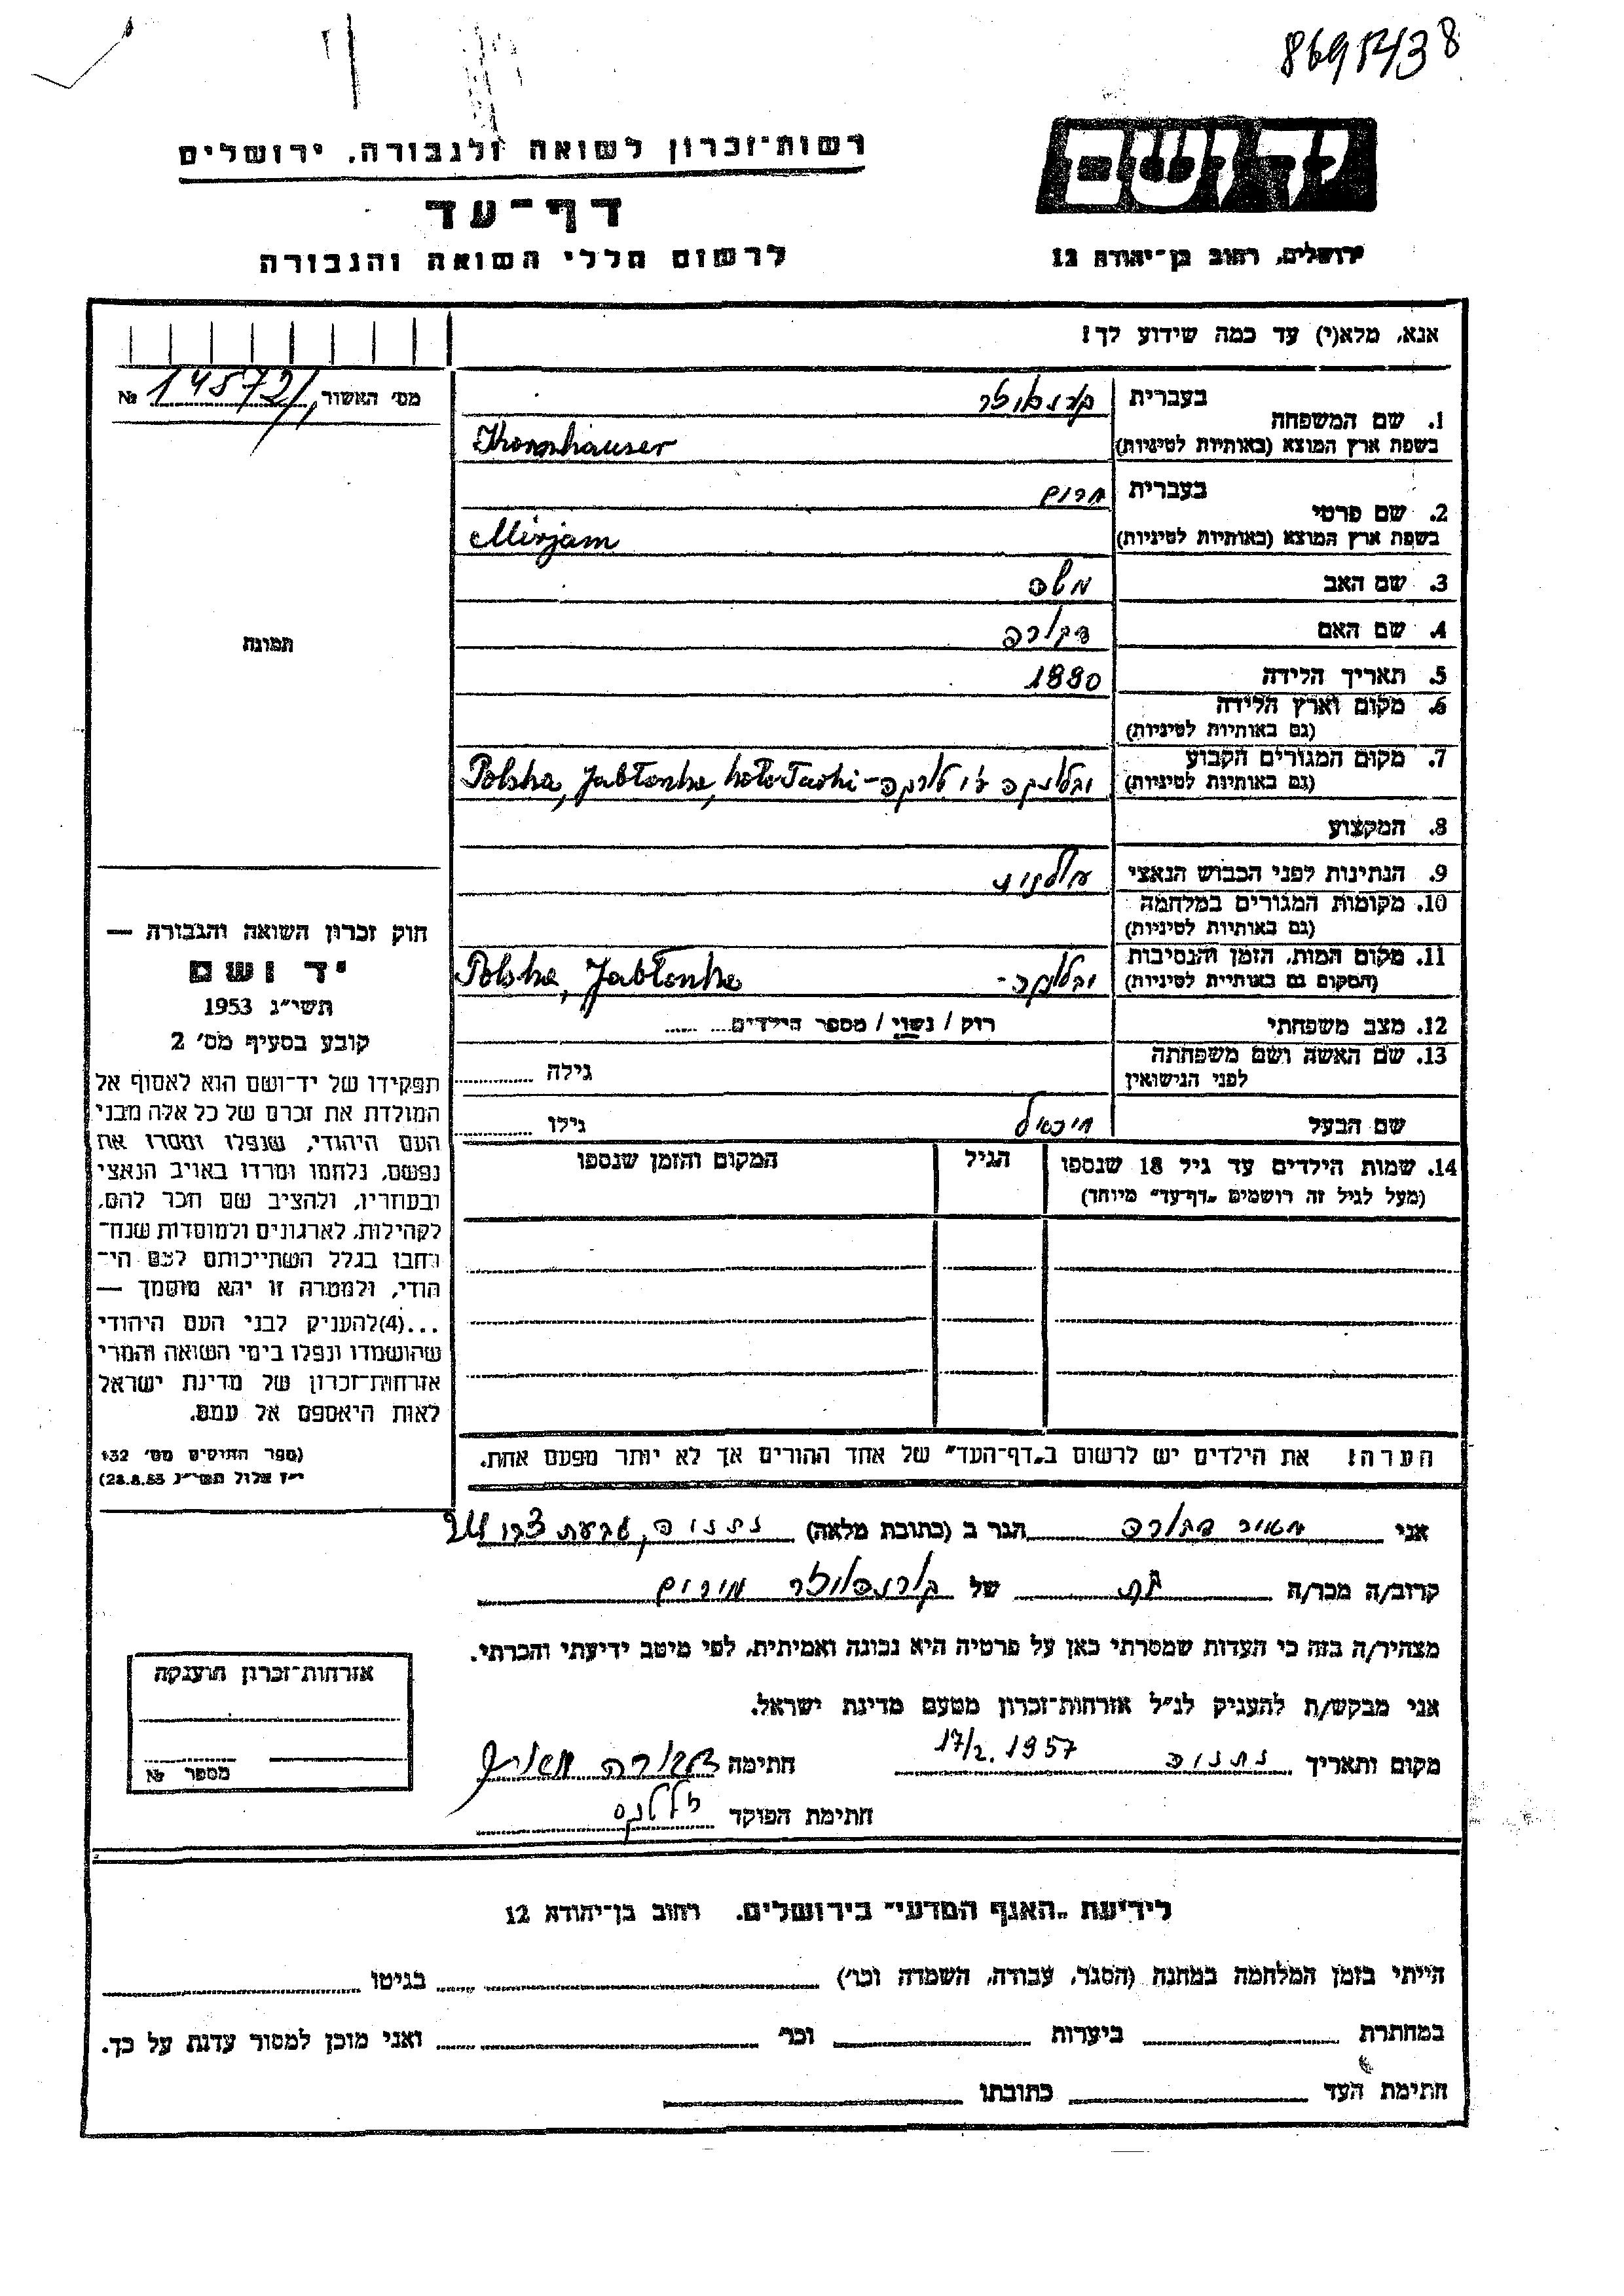 869 138
רשות־זכרון לשואה ולגבורה, ירושלים
דף־עד
לרשום חללי השואה והגבורה
יד ושם
ירושלים, רחוב בן־יהודה 12
אנא, מלא(י) עד כמה שידוע לך!
מס׳ האשור № 14572
1. שם המשפחה
בעברית קורנהאוזר
בשפת ארץ המוצא (באותיות לטיניות) Kornhauser
2. שם פרטי
בעברית מרים
בשפת ארץ המוצא (באותיות לטיניות) Mirjam
3. שם האב משה
4. שם האם דבורה
5. תאריך הלידה 1880
6. מקום וארץ הלידה
(גם באותיות לטיניות)
7. מקום המגורים הקבוע
(גם באותיות לטיניות) Polska, Jabłonka, koło Turki
8. המקצוע
9. הנתינות לפני הכבוש הנאצי פולנית
10. מקומות המגורים במלחמה
(גם באותיות לטיניות)
11. מקום המות, הזמן והנסיבות
(המקום גם באותיות לטיניות) יבלונקה - Polska, Jabłonka
12. מצב משפחתי רוק / נשוי / מספר הילדים
13. שם האשה ושם משפחתה
לפני הנישואין גילה
שם הבעל מיכאל גילו
14. שמות הילדים עד גיל 18 שנספו הגיל המקום והזמן שנספו
(מעל לגיל זה רושמים „דף־עד״ מיוחד)
הערה: את הילדים יש לרשום ב„דף־העד״ של אחד ההורים אך לא יותר מפעם אחת.
תמונה
חוק זכרון השואה והגבורה —
יד ושם
תשי״ג 1953
קובע בסעיף מס׳ 2
תפקידו של יד־ושם הוא לאסוף אל
המולדת את זכרם של כל אלה מבני
העם היהודי, שנפלו ומסרו את
נפשם, נלחמו ומרדו באויב הנאצי
ובעוזריו, ולהציב שם וזכר להם,
לקהילות, לארגונים ולמוסדות שנח־
רבו בגלל השתייכותם לעם הי־
הודי, ולמטרה זו יהא מוסמך —
...(4)להעניק לבני העם היהודי
שהושמדו ונפלו בימי השואה והמרי
אזרחות־זכרון של מדינת ישראל
לאות היאספם אל עמם.
(ספר החוקים מס׳ 132
י״ז אלול תשי״ג 28.8.53)
אני מאיר דבורה הגר ב (כתובת מלאה) נתניה,
קרוב/ה מכר/ה בת של קורנהאוזר מירים
מצהיר/ה בזה כי העדות שמסרתי כאן על פרטיה היא נכונה ואמיתית, לפי מיטב ידיעתי והכרתי.
אני מבקש/ת להעניק לנ״ל אזרחות־זכרון מטעם מדינת ישראל.
מקום ותאריך נתניה 17/2. 1957 חתימה דבורה מאיר
חתימת הפוקד
אזרחות־זכרון הוענקה
מספר №
לידיעת „האגף המדעי״ בירושלים, רחוב בן־יהודה 12
הייתי בזמן המלחמה במחנה (הסגר, עבודה, השמדה וכו׳) בגיטו
במחתרת ביערות וכו׳ ואני מוכן למסור עדות על כך.
חתימת העד כתובתו